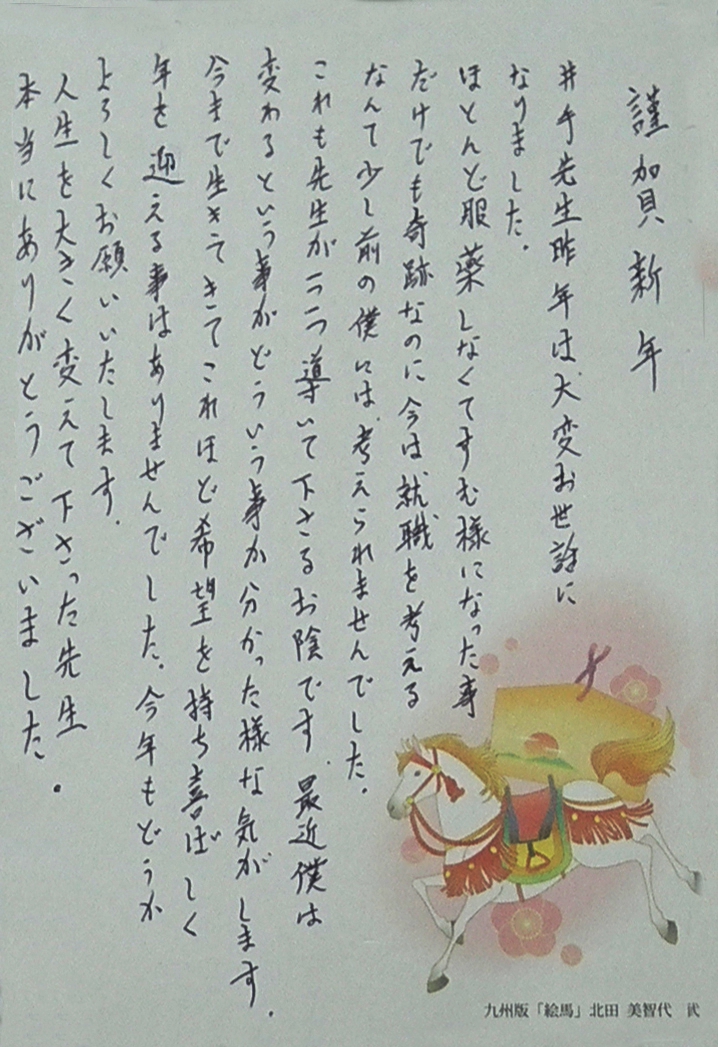 謹加貝新年
井手先生昨年は、大変お世話に
なりました。
ほとんど服薬しなくてすむ様になった事
だけでも奇跡なのに今は就職を考える
なんて少し前の僕には、考えられませんでした。
これも先生が一つ一つ導いて下さるお陰です。最近僕は
変わるという事がどういう事か分かった様な気がします。
今まで生きてきてこれほど希望を持ち喜ばしく
年を迎える事はありませんでした。今年もどうか
よろしくお願いいたします。
人生を大きく変えて下さった先生
本当にありがとうございました。
九州版「絵馬」北田 美智代 弐